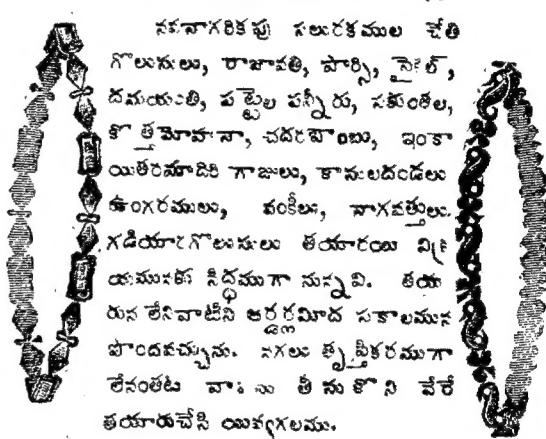 నవనాగరికపు పలురకముల చేతి
గొలుసులు, రాజావతి, పార్సి, సైకిల్,
దమయంతి, పట్టెల పన్నీరు, సకుంతల,
కొత్తమోహనా, చదరపొంబు, ఇంకా
యితరమాదిరి గాజులు, కాసులదండలు
ఉంగరములు, వంకీలు, నాగవత్తులు.
గడియారగొలుసులు తయారయి విక్ర
యమునకు సిద్ధముగా నున్నవి. తయా
రున లేనివాటిని ఆర్డర్లమీద సకాలమున
పొందవచ్చును. నగలు తృప్తికరముగా
లేనంతట వాటిను తీసుకొని వేరే
తయారుచేసి యివ్వగలము.